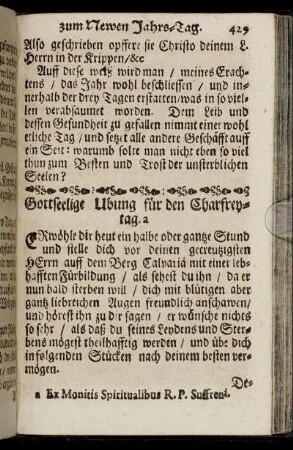 zum Newen Jahrs-Tag. 429
Also geschrieben opffere sie Christo deinem L.
Herrn in der Krippen/&c
Auff diese weiß wird man / meines Erach-
tens / das Jahr wohl beschliessen / und in-
nerhalb der drey Tagen erstatten/was in so viel-
len verabsaumet worden. Dem Leib und
dessen Gesundheit zu gefallen nimmt einer wohl
etliche Tag / und setzt alle andere Geschäfft auff
ein Seit: warumb solte man nicht eben so viel
thun zum Besten und Trost der unsterblichen
Seelen?
Gottseelige Ubung für den Charfrey-
tag. a
ERwöhle dir heut ein halbe oder gantze Stund
und stelle dich vor deinen gecreutzigsten
HErrn auff dem Berg Calvariä mit einer leb-
hafften Fürbildung / als sehest du ihn / da er
nun bald sterben will / dich mit blütigen aber
gantz liebreichen Augen freundlich anschawen/
und hörest ihn zu dir sagen / er wünsche nichts
so sehr / als daß du seines Leydens und Ster-
bens mögest theilhafftig werden / und übe dich
in folgenden Stücken nach deinem besten ver-
mögen.
De-
a Ex Monitis Spiritualibus R. P. Suffreni.